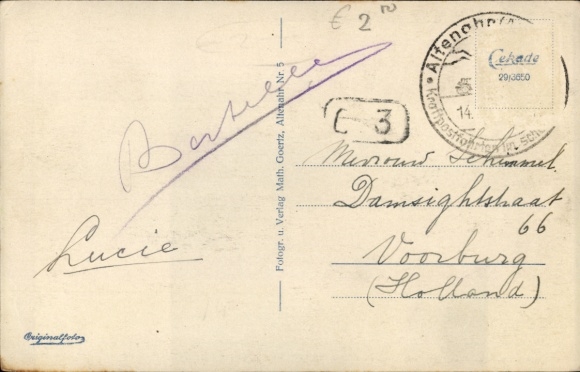 € 2
Altenahr
Kraftpostfahrten im
14.
Cekade
29/3650
3
Lucie
Mevrouw Schimmel
Damsightstraat
66
Voorburg
(Holland)
Fotogr. u. Verlag Math. Goertz, Altenahr Nr. 5
Originalfoto